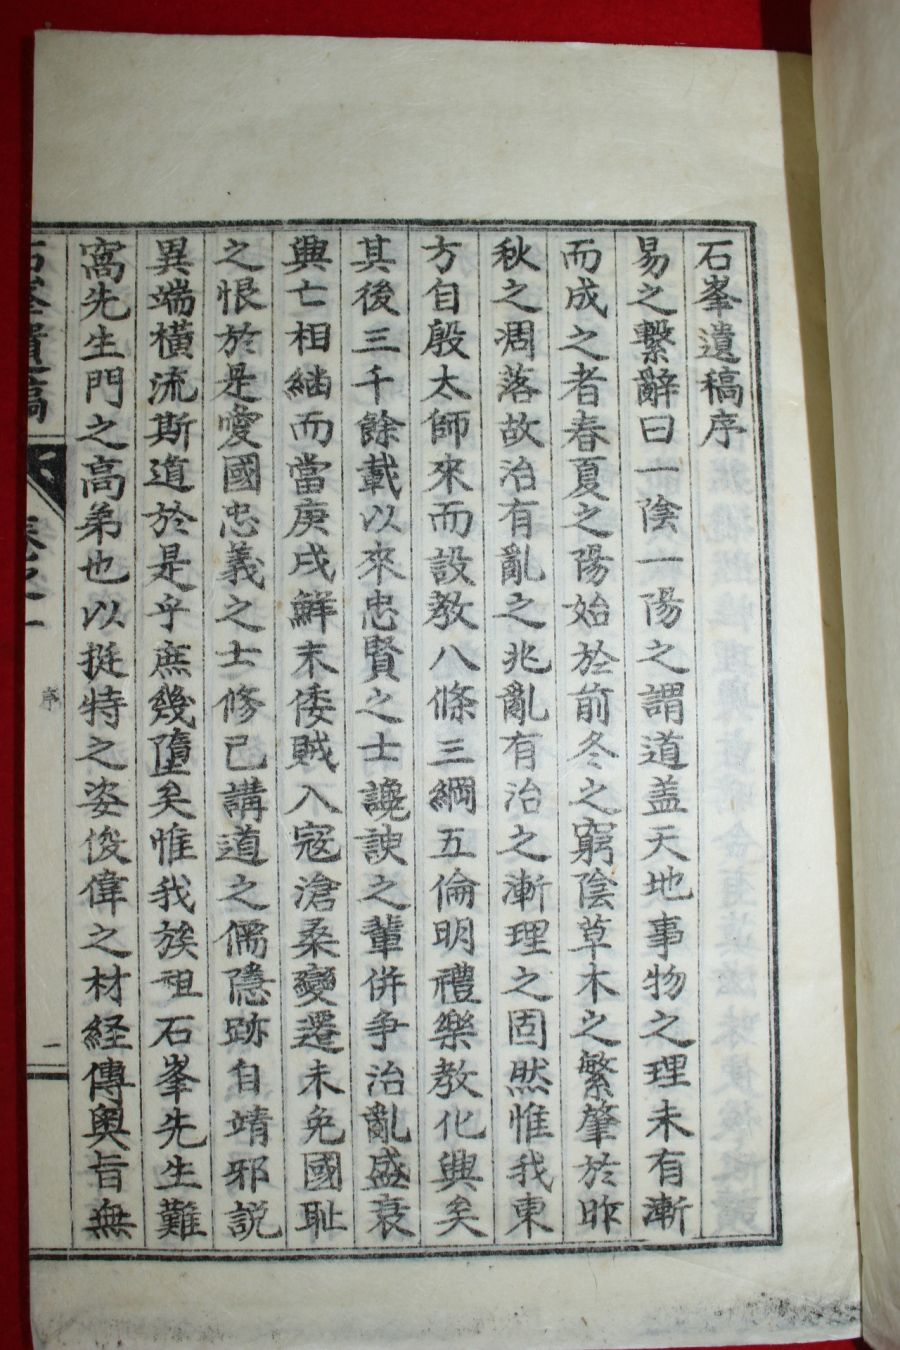 石峯遺稿序
易之繫辭曰一陰一陽之謂道盖天地事物之理未有漸
而成之者春夏之陽始於前冬之窮陰草木之繁肇於昨
秋之凋落故治有亂之兆亂有治之漸理之固然惟我東
方自殷太師來而設教八條三綱五倫明禮樂教化興矣
其後三千餘載以來忠賢之士讒諛之輩併争治亂盛衰
興亡相紬而當庚戌鮮末倭賊入寇滄桑變遷未免國耻
之恨於是愛國忠義之士修己講道之儒隱跡自靖邪説
異端橫流斯道於是乎庶幾墮矣惟我族祖石峯先生難
窩先生門之高弟也以挺特之姿俊偉之材経傳奧旨無
石峯遺稿 卷之一 序 一